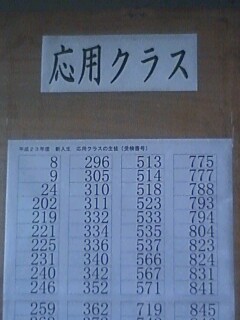 応用クラス
平成25年度 新入生 応用クラスの合格(受検番号)
8 296 513 775
9 305 514 777
24 310 518 788
202 311 523 793
219 332 533 794
221 334 535 804
225 336 537 823
231 340 566 824
240 342 567 831
246 352 571 841
259 362 719 845